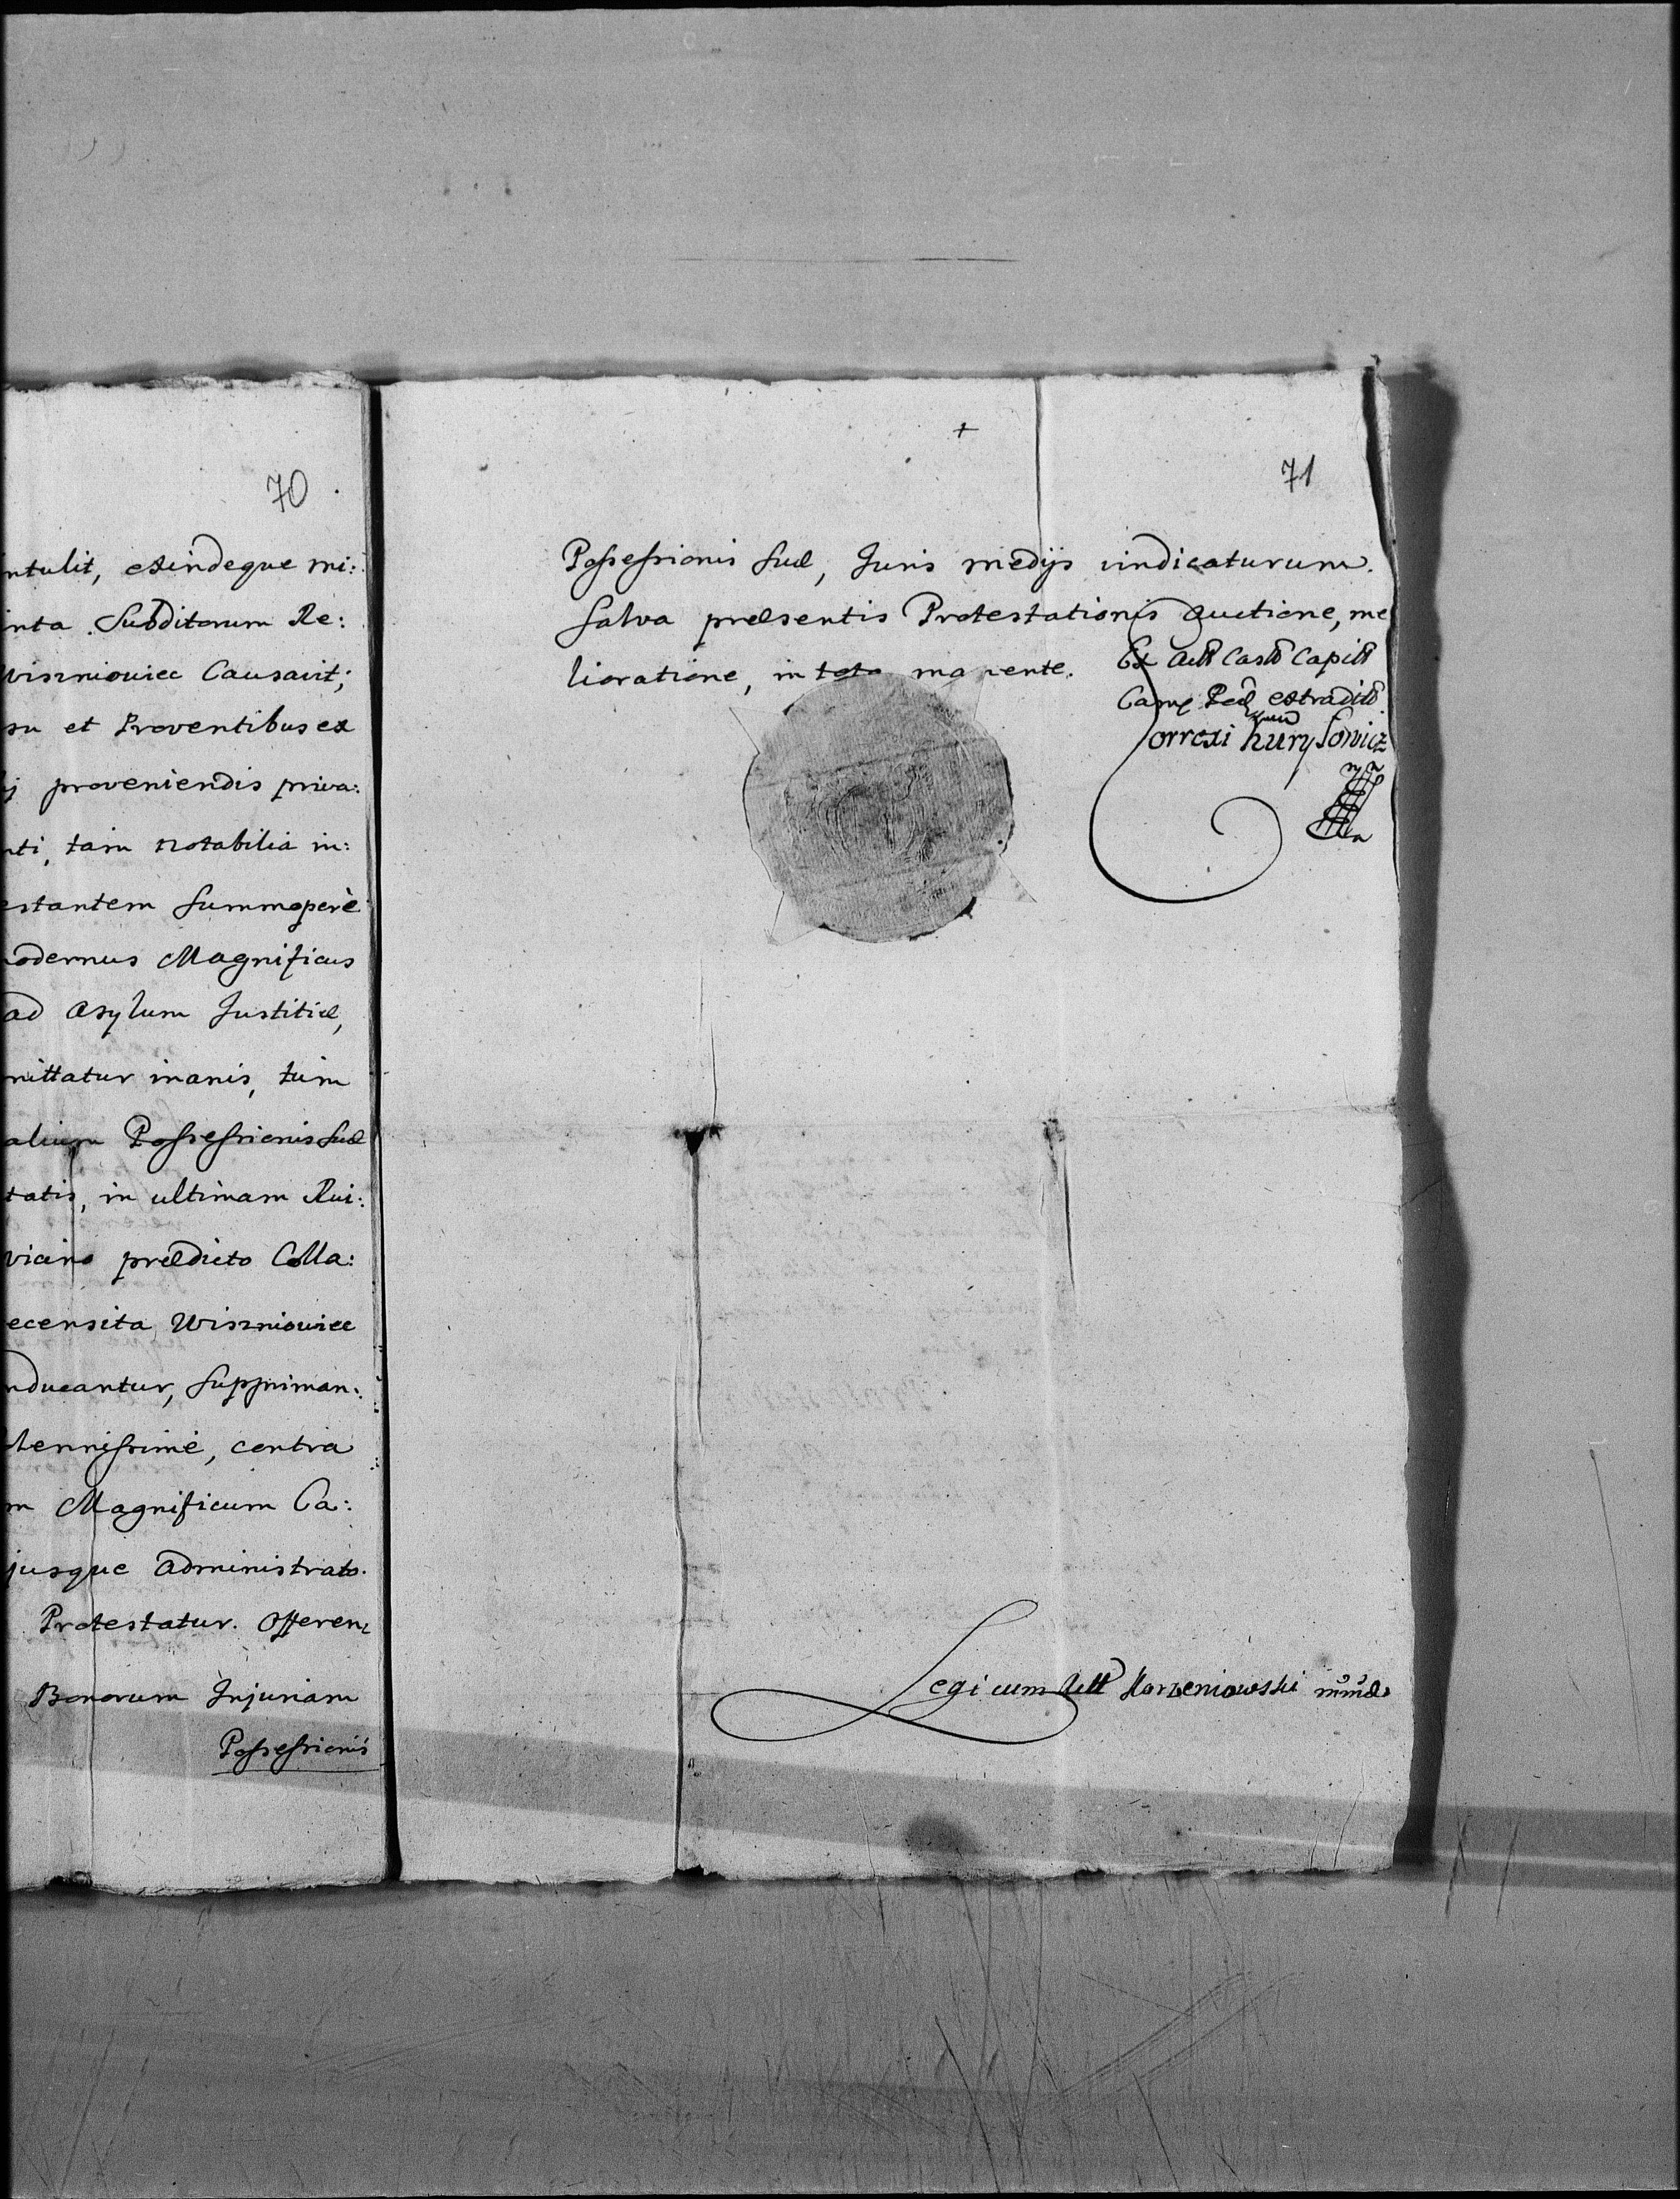 70
ntulit, exindeque mi:
inta Subditorum Re:
Wiszniowiec Causavit;
su et Proventibus ex
ij proveniendis priva:
nti, tam notabilia in:
estantem Summoperè
odernus Magnificus
ad Asylum Justitiæ,
mittatur inanis, tum
alium Possessionis Suæ
tatis, in ultimam Rui:
vicino prædicto Colla:
ecensita Wiszniowiec
nducantur, Suppriman:
lennissimè, contra
m Magnificum Ca:
jusque Administrato.
Protestatur. Offeren:
Bonorum Injuriam
Possessionis
71
Possessionis Suæ, Juris medijs vindicaturum.
Salva præsentis Protestationis Auctione, me
lioratione, in toto manente.
Ex Actt Castr Capitt
Camp Pod extradit
Correxi hurysowicz
mp
Legi cum Actt Korzeniowski